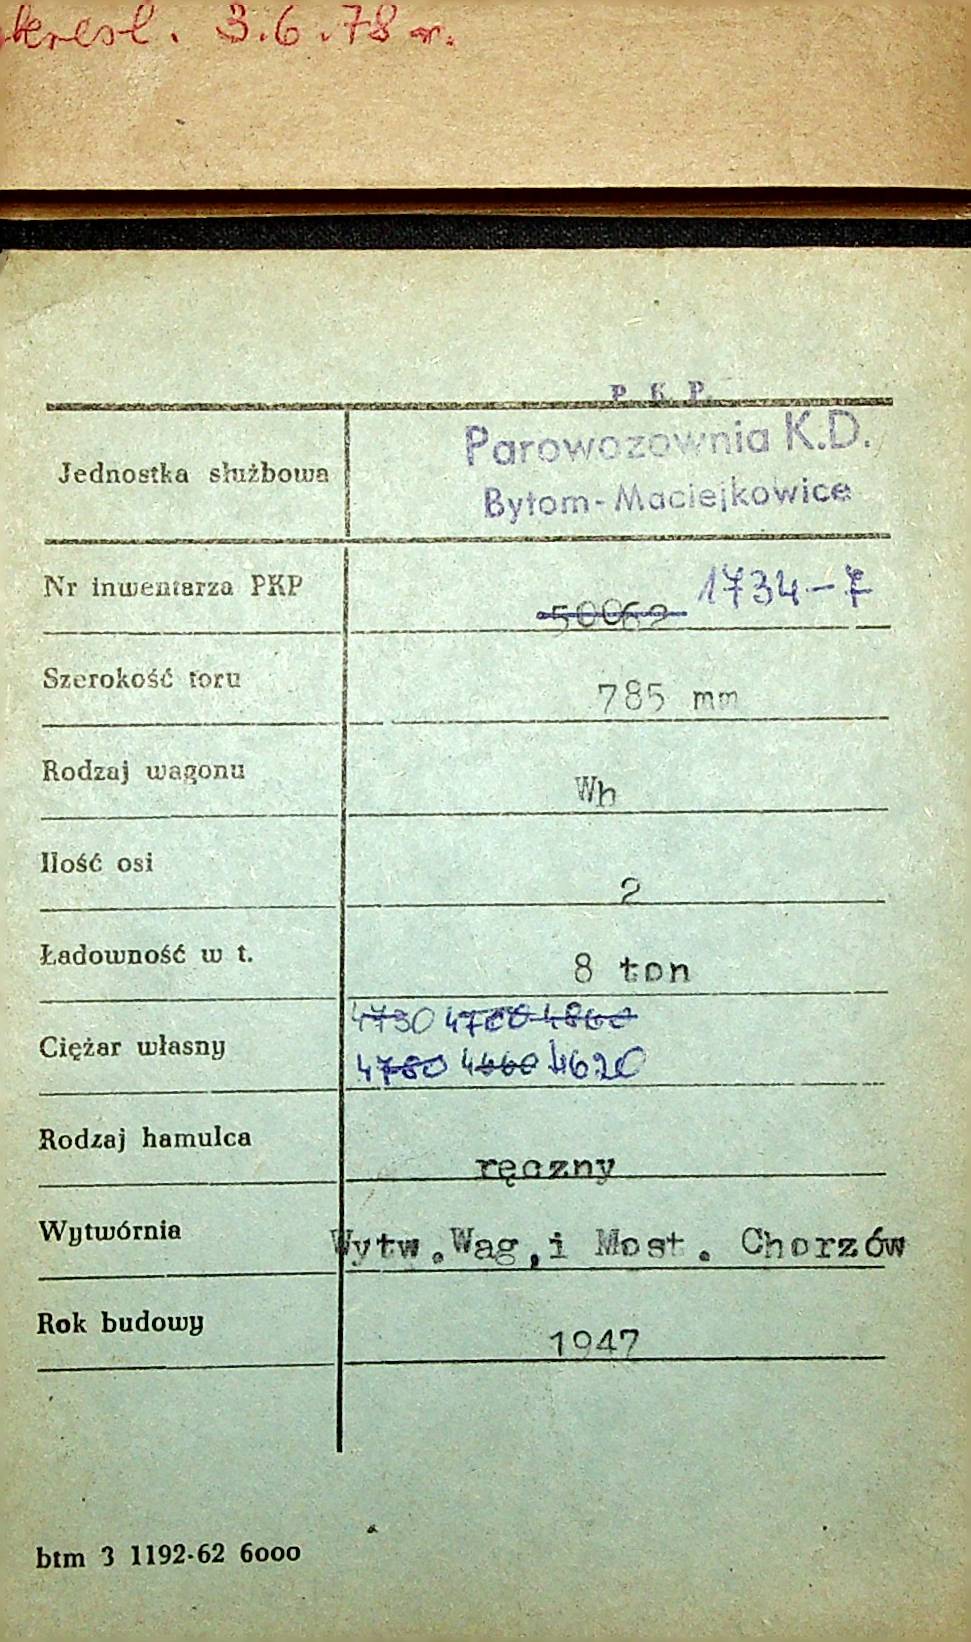 kresl. 3.6.78 r.
P. K. P.
Jednostka służbowa Parowozownia K.D.
Bytom-Maciejkowice
Nr inwentarza PKP 50062 1734-7
Szerokość toru 785 mm
Rodzaj wagonu Wh
Ilość osi 2
Ładowność w t. 8 ton
4730 4700 4860
Ciężar własny 4780 4660 4620
Rodzaj hamulca ręczny
Wytwórnia Wytw.Wag,i Most. Chorzów
Rok budowy 1947
btm 3 1192-62 6000